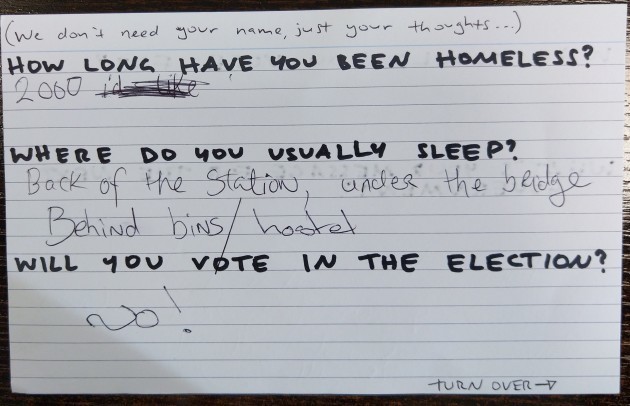 (We don't need your name, just your thoughts...)
HOW LONG HAVE YOU BEEN HOMELESS?
2000
WHERE DO YOU USUALLY SLEEP?
Back of the Station, under the bridge
Behind bins/hostel
WILL YOU VOTE IN THE ELECTION?
No!
TURN OVER→